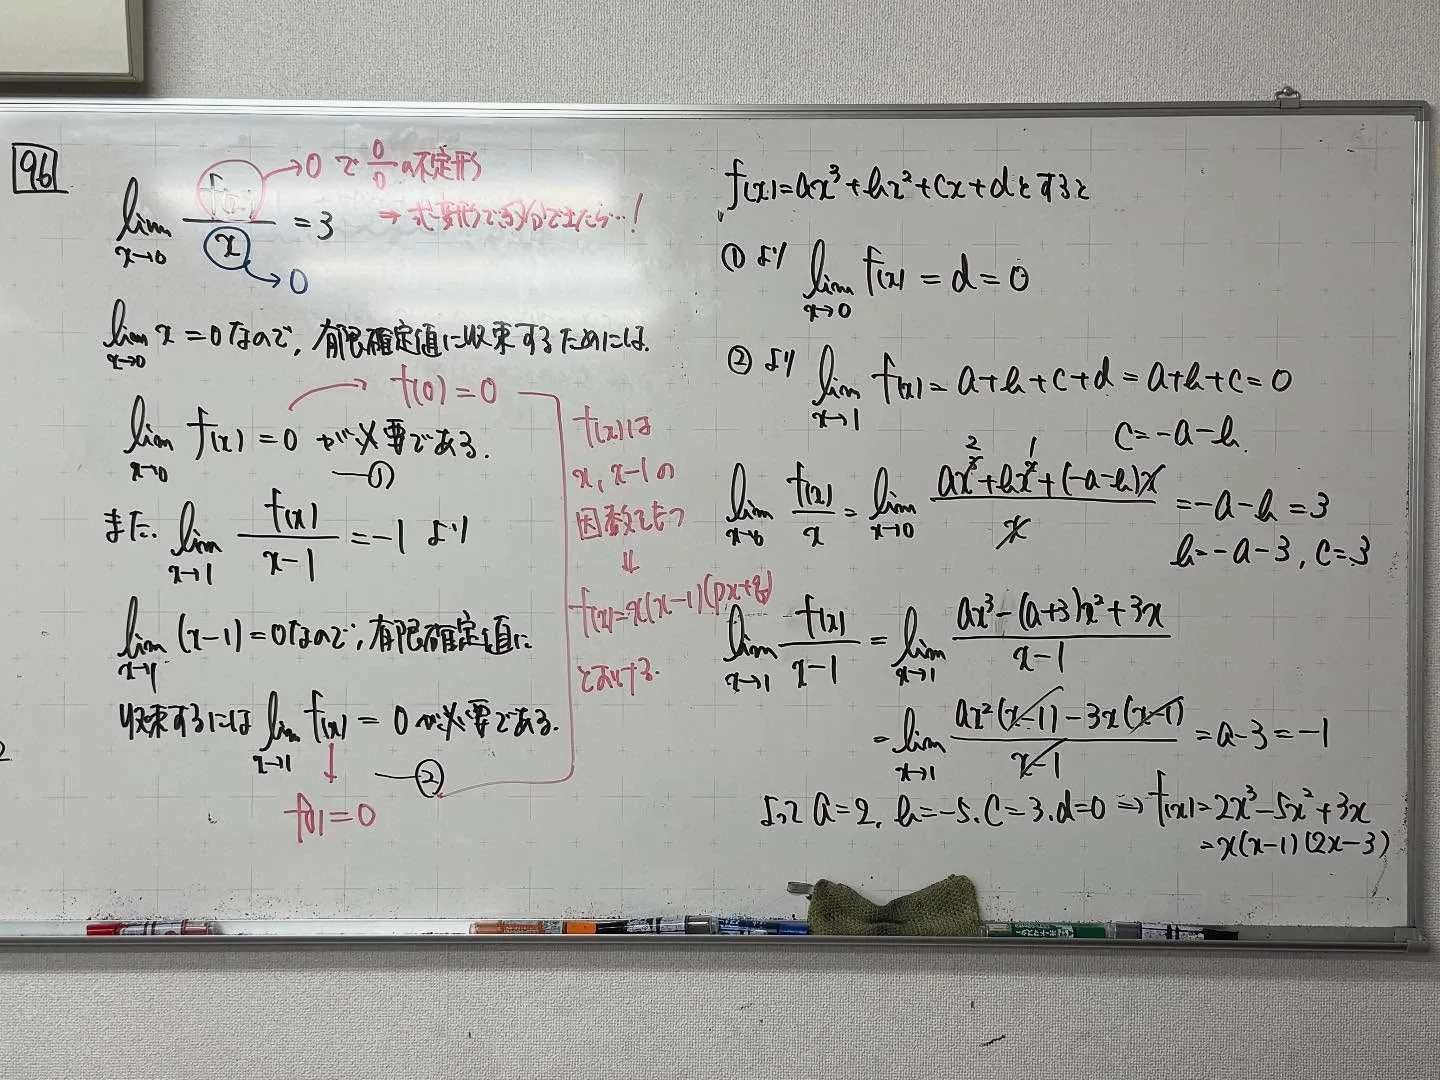 96
lim x→0 f(x)/x = 3
→0 で 0/0 の不定形
⇒ 式変形で約分できたら…!
→0
lim x→0 x = 0 なので, 有限確定値に収束するためには,
→ f(0) = 0
lim x→0 f(x) = 0 が必要である.
—①
また, lim x→1 f(x)/(x-1) = -1 より
lim x→1 (x-1) = 0 なので, 有限確定値に
収束するには lim x→1 f(x) = 0 が必要である.
—②
f(1) = 0
f(x)は
x, x-1の
因数をもつ
⇓
f(x)=x(x-1)(px+q)
とおける.
f(x)=ax³+bx²+cx+dとすると
① より lim x→0 f(x) = d = 0
② より lim x→1 f(x) = a+b+c+d = a+b+c = 0
c = -a-b.
lim x→0 f(x)/x = lim x→0 (ax³+bx²+(-a-b)x)/x = -a-b = 3
b = -a-3, c = 3
lim x→1 f(x)/(x-1) = lim x→1 (ax³-(a+3)x²+3x)/(x-1)
= lim x→1 (ax²(x-1)-3x(x-1))/(x-1) = a-3 = -1
よって a=2, b=-5, c=3, d=0 ⇒ f(x)=2x³-5x²+3x
= x(x-1)(2x-3)